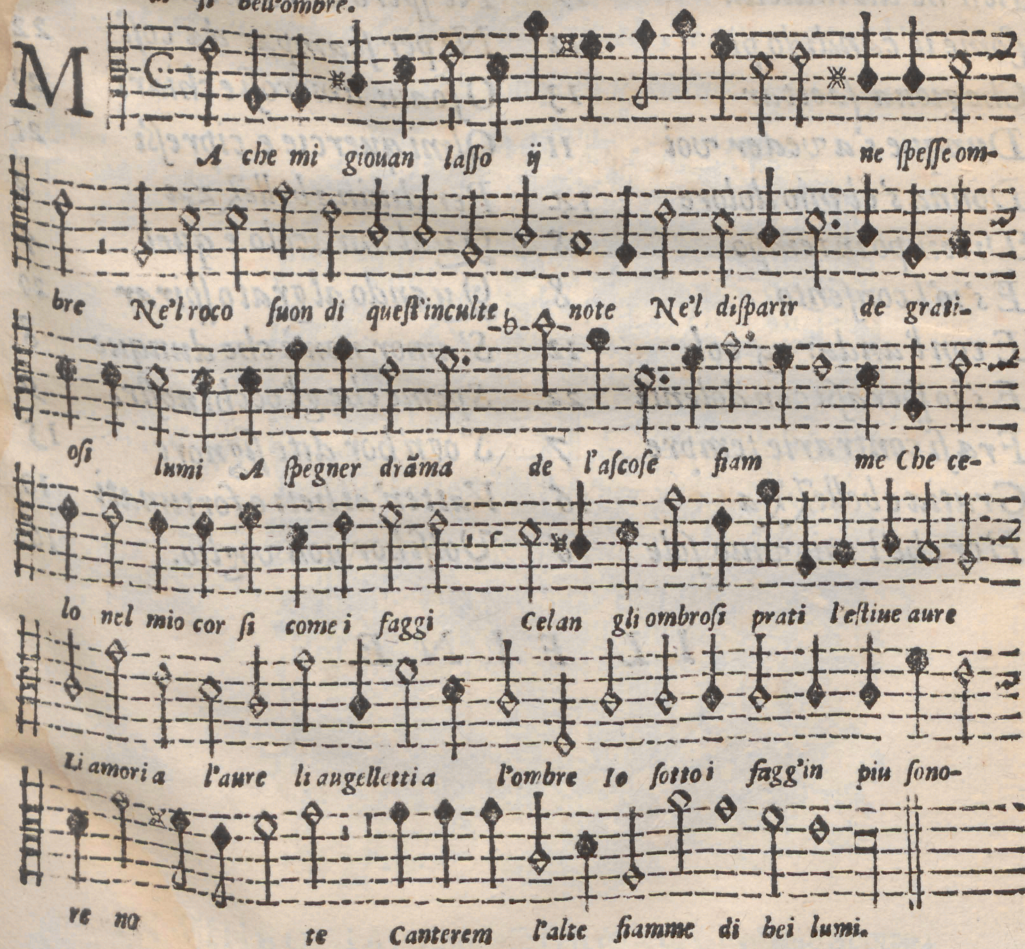 si bell'ombre.
MA che mi giouan lasso ij ne spesse om-
bre Ne'l roco suon di quest'inculte note Ne'l disparir de grati-
osi lumi A spegner drãma de l'ascose fiam me Che ce-
lo nel mio cor si come i faggi Celan gli ombrosi prati l'estiue aure
Li amori a l'aure li augelletti a l'ombre Io sotto i fagg'in piu sono-
re no te Canterem l'alte fiamme di bei lumi.